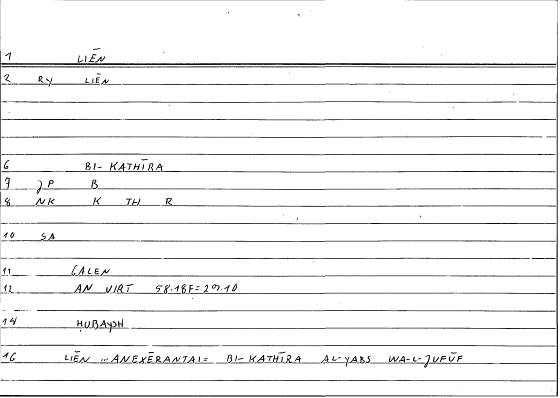 1 LIĒN
2 RY LIĒN
6 BI- KATHĪRA
7 JP B
8 NK K TH R
10 SA
11 GALEN
12 AN VIRT 58.18F=29.10
14 ḤUBAYSH
16 LIĒN ... ANEXĒRANTAI= BI-KATHĪRA AL-YABS WA-L-JUFŪF